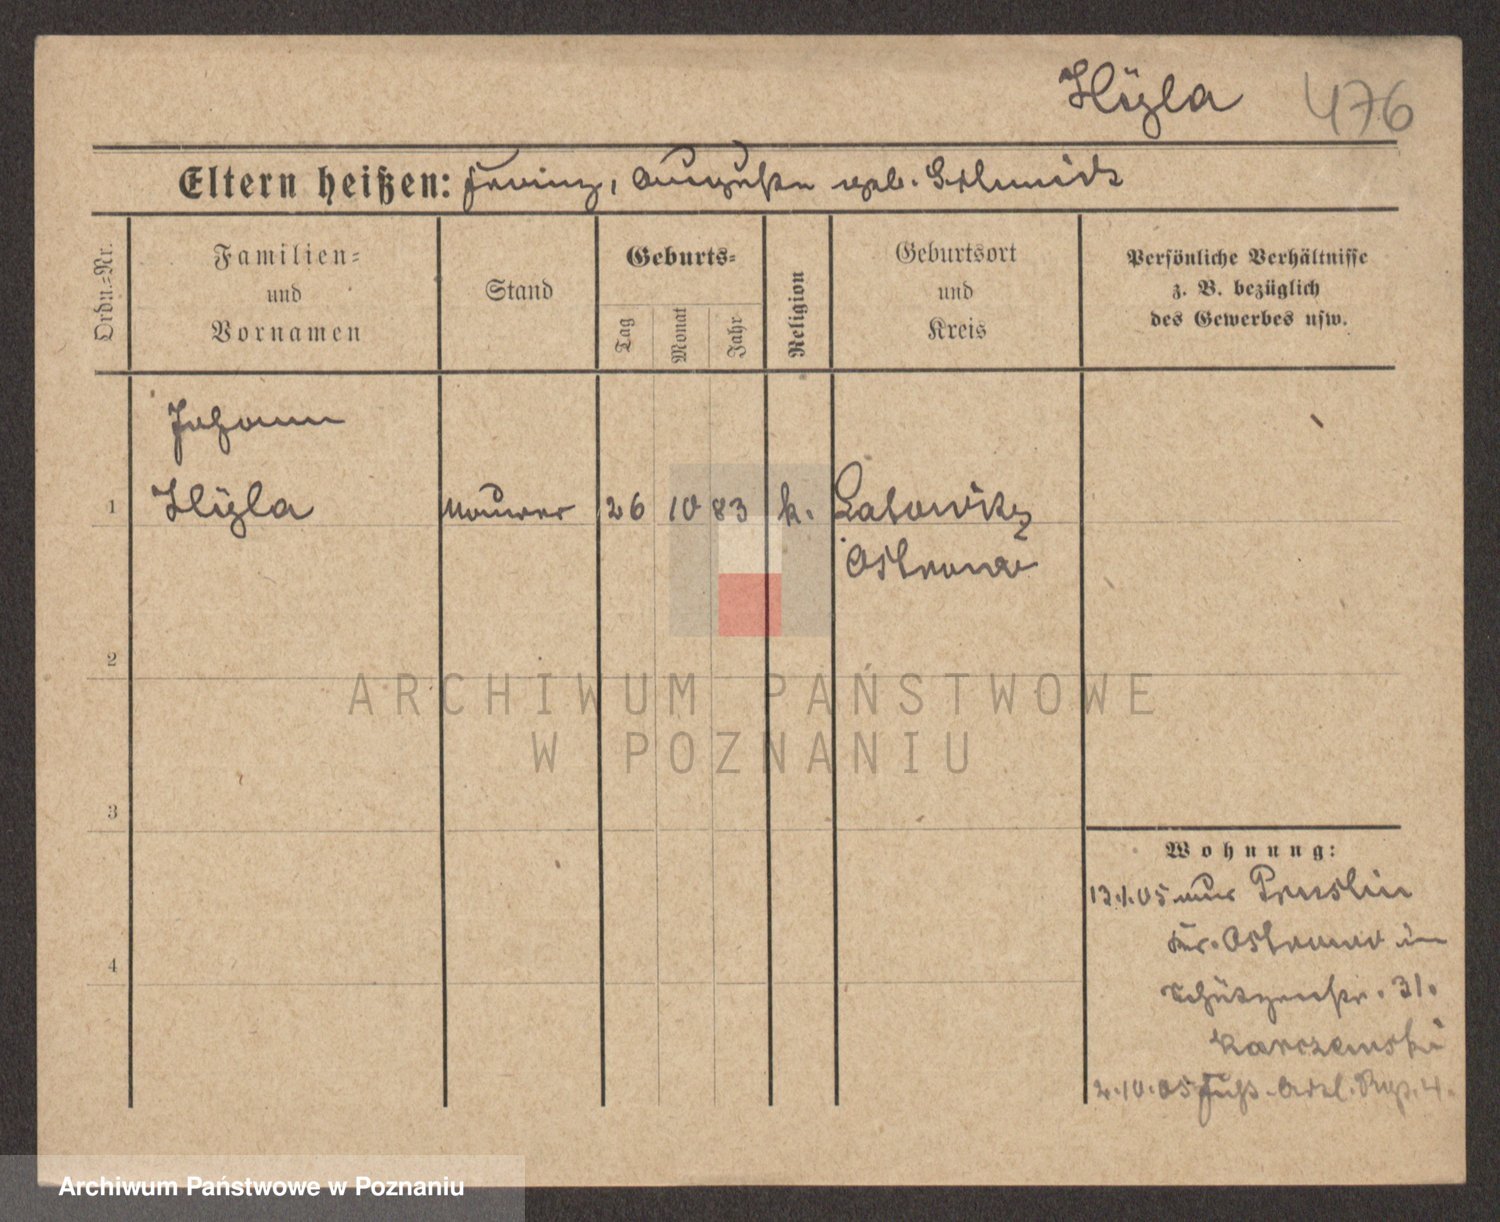 476
Eltern heißen: Franz, Auguste geb. Schmidt
Ordn.=Nr.
Familien=
und
Vornamen
Stand
Geburts=
Tag
Monat
Jahr
Religion
Geburtsort
und
Kreis
Persönliche Verhältnisse
z. B. bezüglich
des Gewerbes usw.
Johann
1
Maurer 26 10 83 k. Latowitz
Ostrowo
2
3
4
Wohnung:
13.1.05 aus Pruslin
Kr. Ostrowo in
Schützenstr. 31.
Karczewski
2.10.05 Fuß. Artl. Rgt. 4.
ARCHIWUM PAŃSTWOWE
W POZNANIU
Archiwum Państwowe w Poznaniu